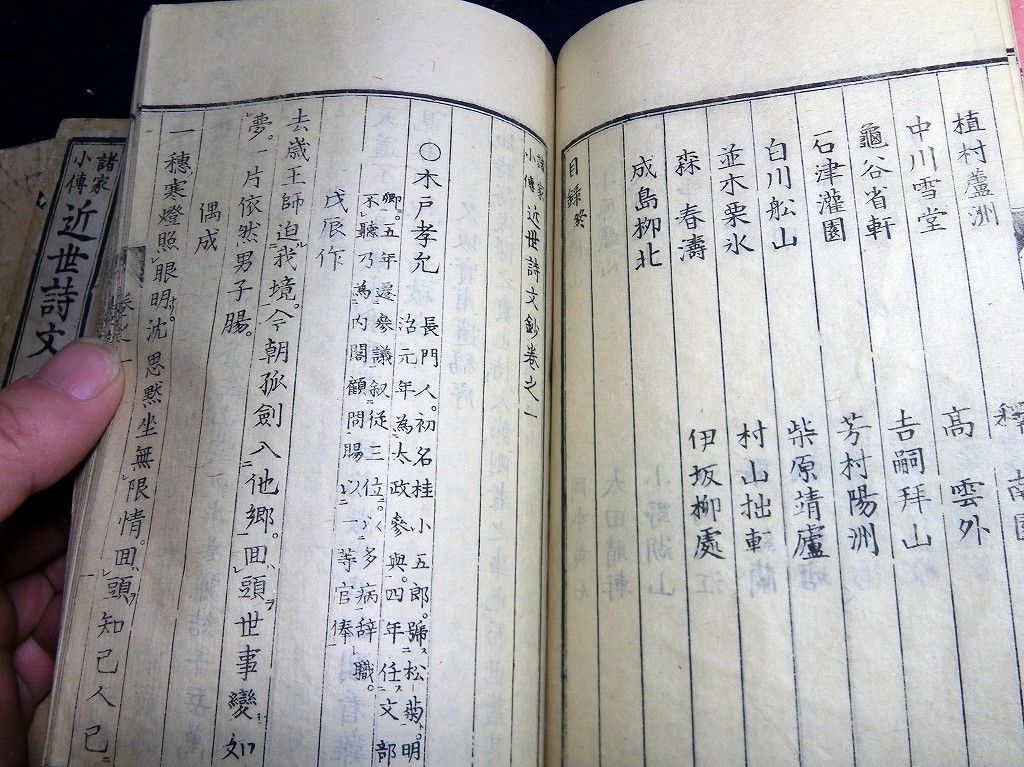 植村蘆洲
釋南園
中川雪堂
高雲外
龜谷省軒
吉嗣拜山
石津灌園
芳村陽洲
白川舩山
柴原靖廬
並木栗水
村山拙軒
森春濤
伊坂柳處
成島柳北
目録終
諸家小傳近世詩文鈔卷之一
〇木戸孝允
長門人。初名桂小五郎。號松菊。明
治元年為太政參與。四年任文部
卿。五年還參議叙從三位。多病辞職。
不聽乃為内閣顧問賜以一等官俸
戊辰作
去歳王師迫我境。今朝孤劍入他郷。回頭世事變如
夢。一片依然男子腸。
偶成
一穗寒燈照眼明。沈思默坐無限情。回頭知己人已
諸家小傳近世詩文